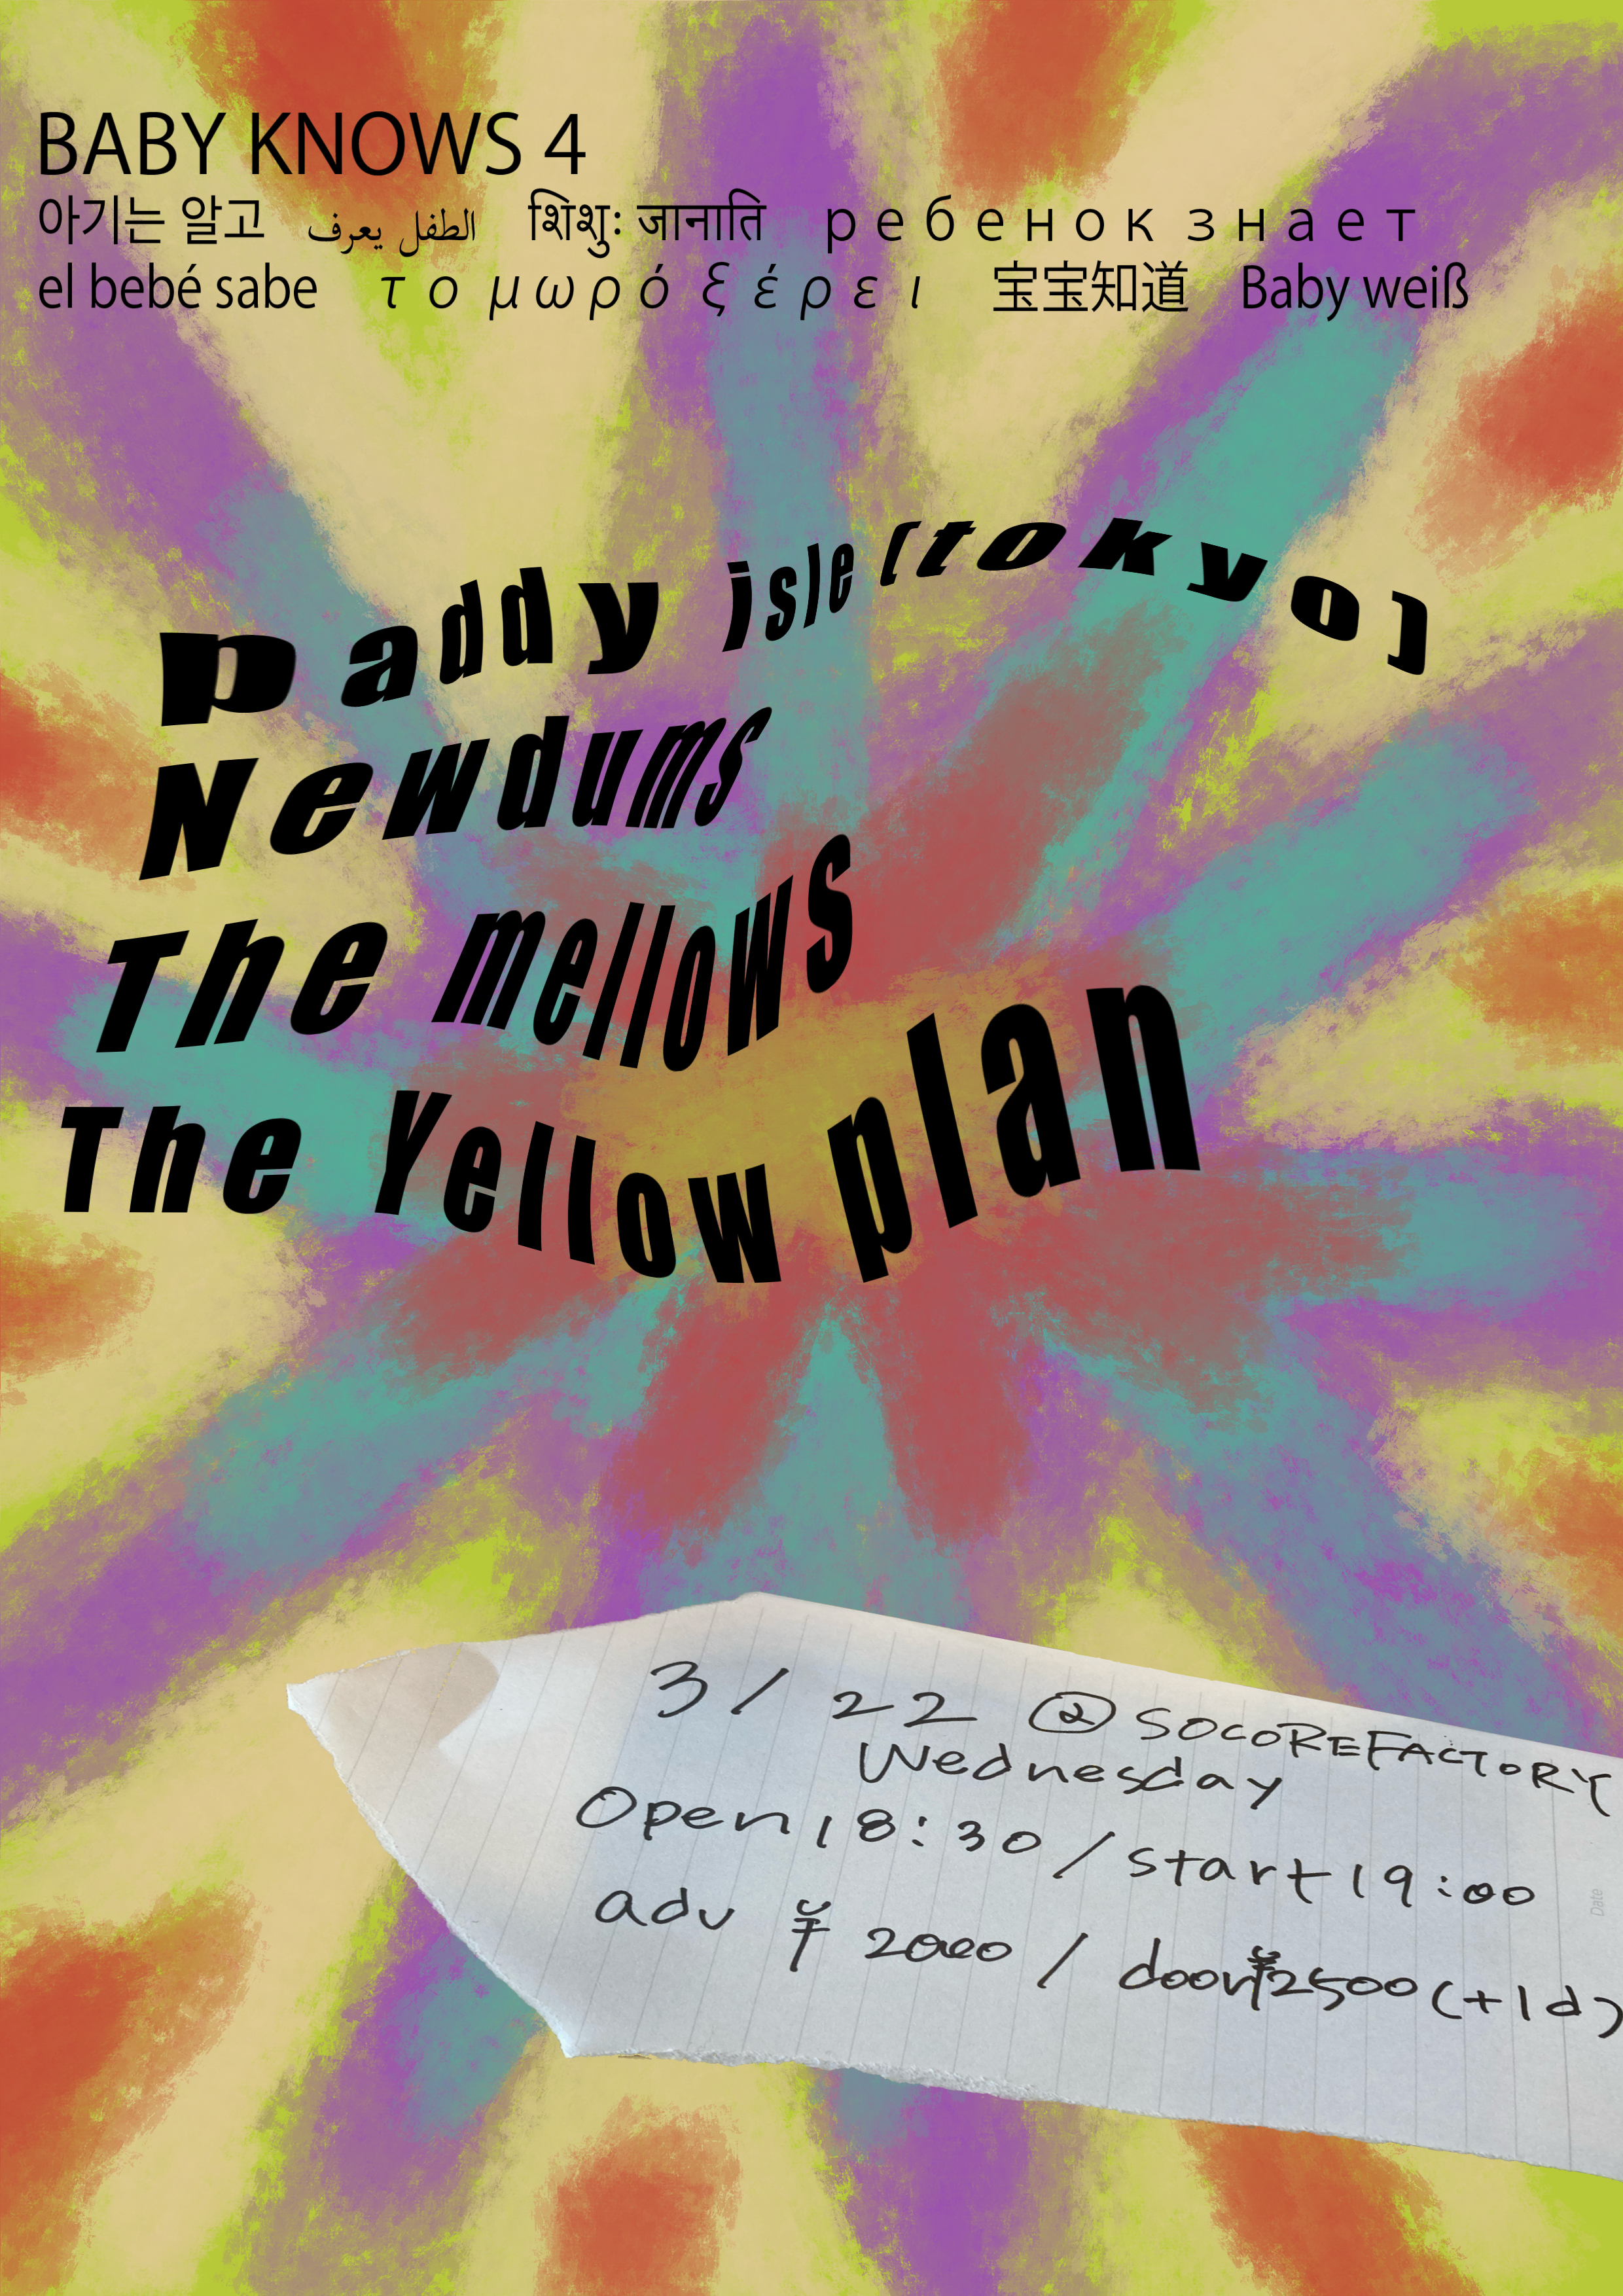 BABY KNOWS 4
아기는 알고 الطفل يعرف शिशुः जानाति ребенок знает
el bebé sabe το μωρό ξέρει 宝宝知道 Baby weiß
paddy isle (tokyo)
Newdums
The mellows
The Yellow plan
3 / 22 @ SOCOREFACTORY
Wednesday
Open 18:30 / start 19:00
adv ¥ 2000 / door¥2500 (+1d)
Date